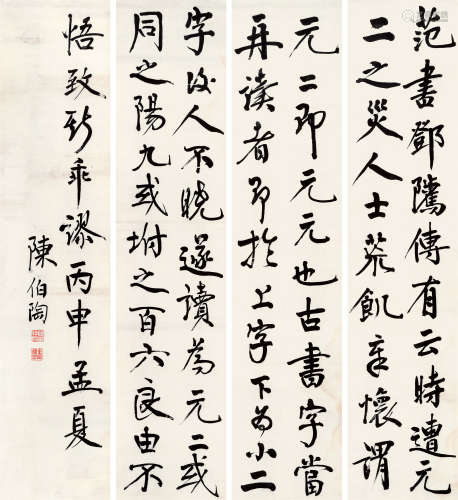 范書鄧隲傳有云時遭元
二之災人士荒飢章懷謂
元二即元元也古書字當
再讀者即於上字下為小二
字後人不曉遂讀為元二或
同之陽九或坿之百六良由不
悟致斯乖謬丙申孟夏
陳伯陶